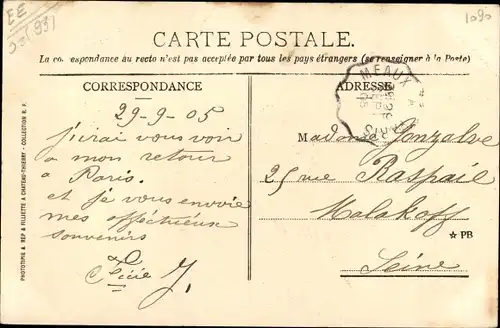 EE
1090
CARTE POSTALE.
La correspondance au recto n'est pas acceptée par tous les pays étrangers (se renseigner à la Poste)
CORRESPONDANCE
ADRESSE
MEAUX
29-9-05
j'irai vous voir
a mon retour
a Paris.
et je vous envoie
mes affectueux
souvenirs
Madame Gonzalve
25 rue Raspail
Malakoff
★ PB
Seine
PHOTOTYPIE A. REP & FILLIETTE A CHATEAU-THIERRY - COLLECTION R. F.